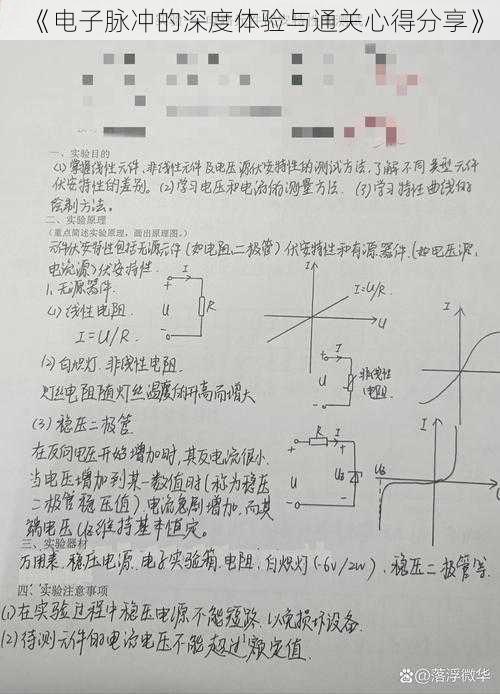 《电子脉冲的深度体验与通关心得分享》
一、实验目的
(1)掌握线性元件、非线性元件及电压源伏安特性的测试方法,了解不同类型元件
伏安特性的差别。(2)学习电压和电流的测量方法. (3)学习特性曲线的
绘制方法。
二、实验原理
(重点简述实验原理,画出原理图。)
元件伏安特性包括无源元件(如电阻、二极管)伏安特性和有源器件.(如电压源,
电流源)伏安特性.
1.无源器件.
(1)线性电阻.
I=U/R
+ U - I R
I I=U/R. U
(2)白炽灯.非线性电阻.
灯丝电阻随灯丝温度的升高而增大
+ U - I 非线性电阻.
I
(3)稳压二极管.
在反向电压开始增加时,其反电流很小.
当电压增加到某一数值时(称为稳压
二极管稳压值),电流急剧增加,而其
端电压Uz维持基本恒定。
R I + U -
I
三、实验器材
万用表、稳压电源、电子实验箱、电阻、白炽灯(6v/2w)、稳压二极管等.
四、实验注意事项
(1)在实验过程中稳压电源不能短路,以免损坏设备.
(2)待测元件的电流电压不能超过额定值.
@落浮微华